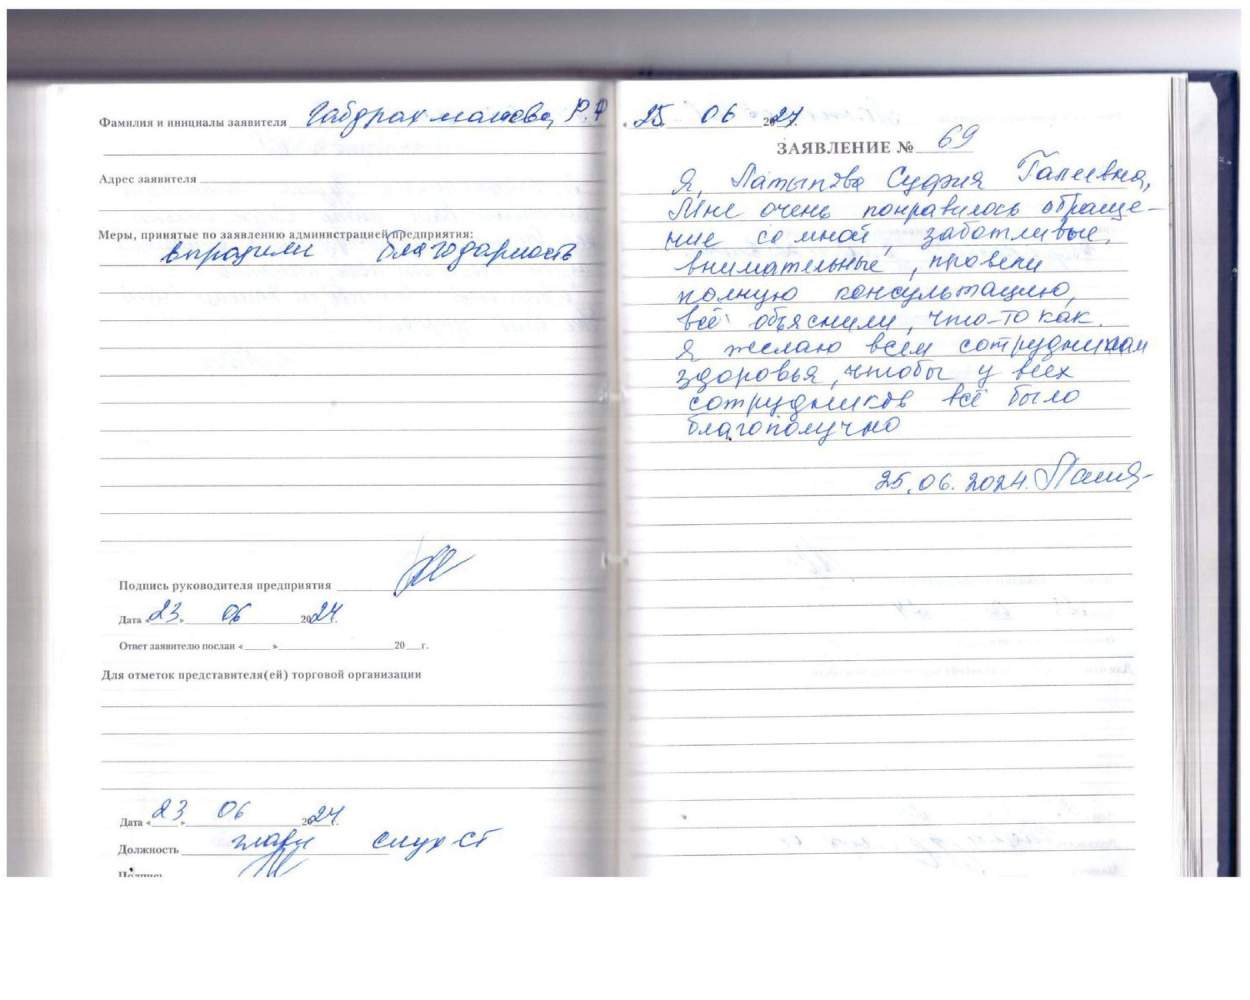 Фамилия и инициалы заявителя Габдрахманова Р.Ф
Адрес заявителя
Меры, принятые по заявлению администрацией предприятия:
выразили благодарность
Подпись руководителя предприятия
Дата «23» 06 2024.
Ответ заявителю послан « » 20 г.
Для отметок представителя(ей) торговой организации
Дата «23» 06 2024.
Должность
Подпись
25. 06 2024.
ЗАЯВЛЕНИЕ № 69
Я, Латыпова Суфия Галеевна,
Мне очень понравилось обраще-
ние со мной, заботливые,
внимательные, провели
полную консультацию,
всё объяснили, что-то как.
Я желаю всем сотрудникам
здоровья, чтобы у всех
сотрудников всё было
благополучно
25.06.2024.